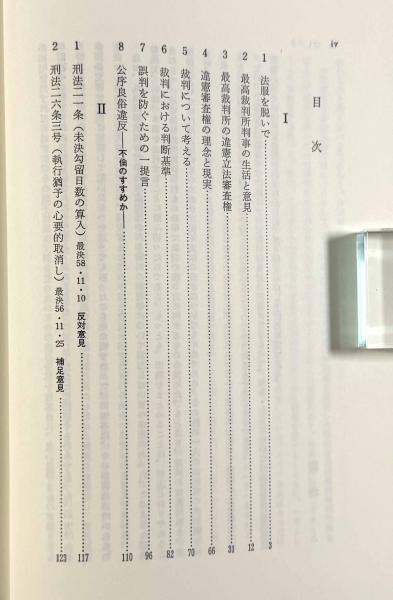 iv
目次
I
1 法服を脱いで 3
2 最高裁判所判事の生活と意見 12
3 最高裁判所の違憲立法審査権 31
4 違憲審査権の理念と現実 66
5 裁判について考える 70
6 裁判における判断基準 82
7 誤判を防ぐための一提言 96
8 公序良俗違反――不倫のすすめか―― 110
II
1 刑法二一条（未決勾留日数の算入）最決58・11・10 反対意見 117
2 刑法二六条三号（執行猶予の心要的取消し）最決56・11・25 補足意見 123